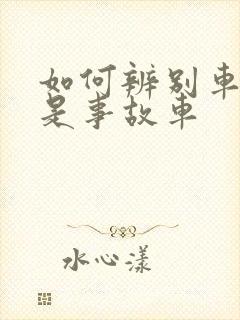 如何辨别车
是事故车
水心漾